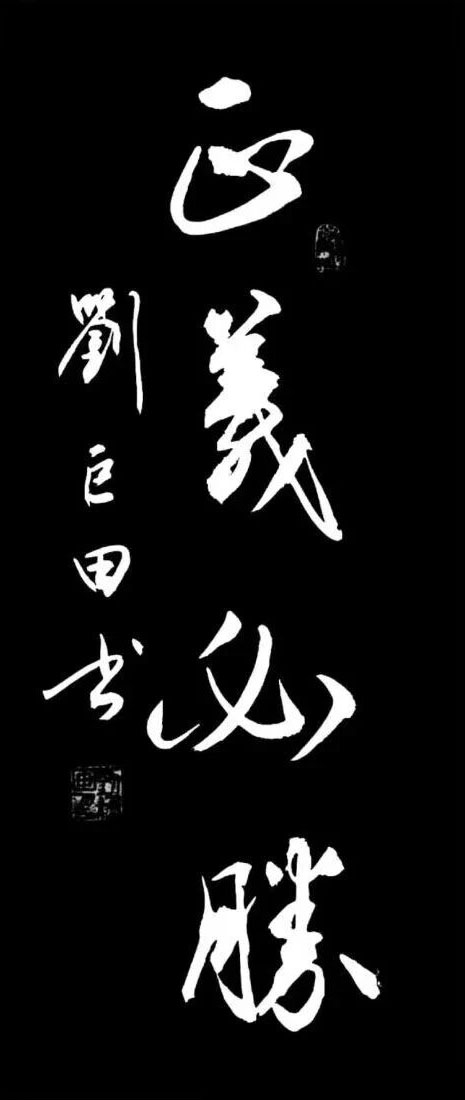 正義必勝
劉巨田书